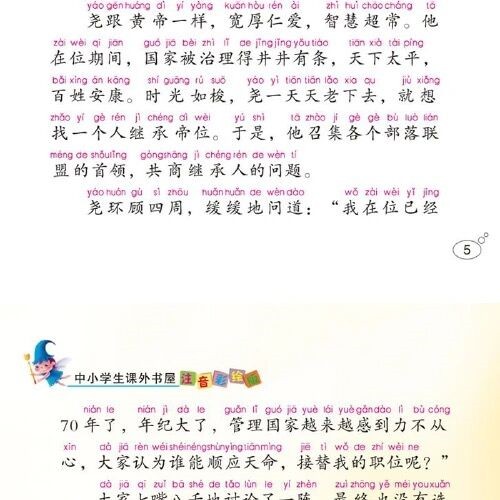 yáo gēn huáng dì yí yàng kuān hòu rén ài zhì huì chāo cháng tā
尧跟黄帝一样，宽厚仁爱，智慧超常。他
zài wèi qī jiān guó jiā bèi zhì lǐ de jǐng jǐng yǒu tiáo tiān xià tài píng
在位期间，国家被治理得井井有条，天下太平，
bǎi xìng ān kāng shí guāng rú suō yáo yì tiān tiān lǎo xia qu jiù xiǎng
百姓安康。时光如梭，尧一天天老下去，就想
zhǎo yí gè rén jì chéng dì wèi yú shì tā zhào jí gè gè bù luò lián
找一个人继承帝位。于是，他召集各个部落联
méng de shǒu lǐng gòng shāng jì chéng rén de wèn tí
盟的首领，共商继承人的问题。
yáo huán gù sì zhōu huǎn huǎn de wèn dào wǒ zài wèi yǐ jīng
尧环顾四周，缓缓地问道：“我在位已经
5
中小学生课外书屋 注音彩绘版
nián le nián jì dà le guǎn lǐ guó jiā yuè lái yuè gǎn dào lì bù cóng
70年了，年纪大了，管理国家越来越感到力不从
xīn dà jiā rèn wéi shéi néng shùn yìng tiān mìng jiē tì wǒ de zhí wèi ne
心，大家认为谁能顺应天命，接替我的职位呢？”
dà jiā qī zuǐ bā shé de tǎo lùn le yí zhèn zuì zhōng yě méi yǒu xuǎn
大家七嘴八舌地讨论了一阵，最终也没有选